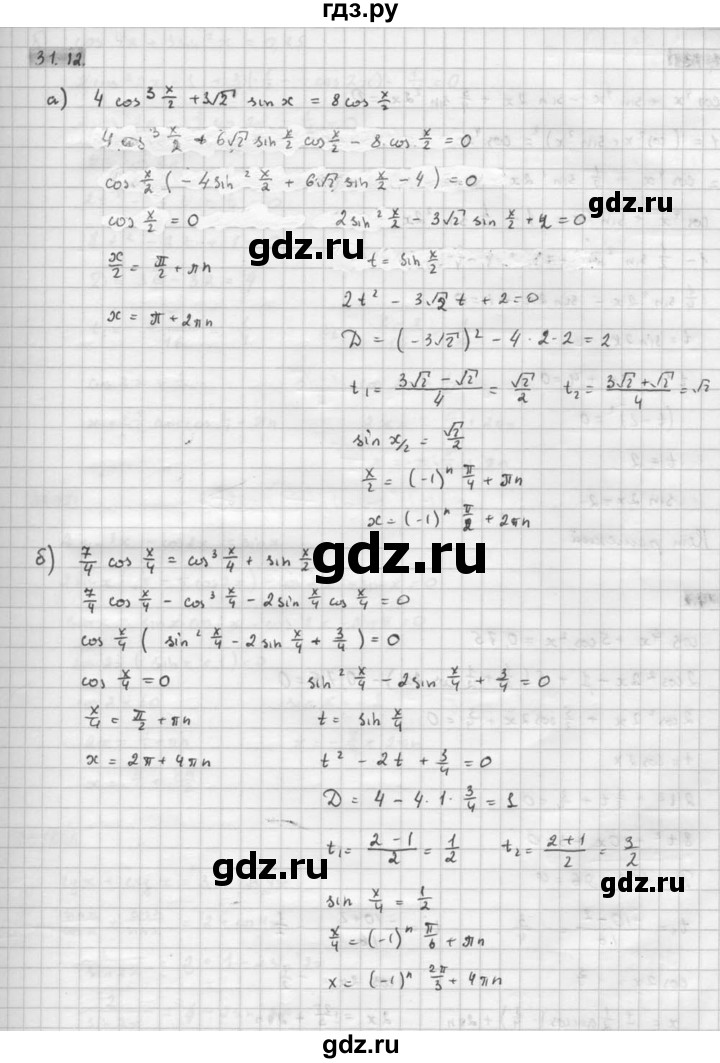 гдз.ру
31.12.
а) 4 cos³ x/2 + 3√2 sin x = 8 cos x/2
4 cos³ x/2 + 6√2 sin x/2 cos x/2 − 8 cos x/2 = 0
cos x/2 ( − 4 sin² x/2 + 6√2 sin x/2 − 4 ) = 0
cos x/2 = 0 2 sin² x/2 − 3√2 sin x/2 + 2 = 0
gdz.ru
x/2 = π/2 + πn t = sin x/2
x = π + 2πn 2t² − 3√2 t + 2 = 0
D = (−3√2)² − 4 · 2 · 2 = 2
t₁ = (3√2 − √2)/4 = √2/2 t₂ = (3√2 + √2)/4 = √2
sin x/2 = √2/2
x/2 = (−1)ⁿ π/4 + πn
x = (−1)ⁿ π/2 + 2πn
б) 7/4 cos x/4 = cos³ x/4 + sin x/2
gdz.ru
7/4 cos x/4 − cos³ x/4 − 2 sin x/4 cos x/4 = 0
cos x/4 ( sin² x/4 − 2 sin x/4 + 3/4 ) = 0
cos x/4 = 0 sin² x/4 − 2 sin x/4 + 3/4 = 0
x/4 = π/2 + πn t = sin x/4
x = 2π + 4πn t² − 2t + 3/4 = 0
D = 4 − 4 · 1 · 3/4 = 1
t₁ = (2 − 1)/2 = 1/2 t₂ = (2 + 1)/2 = 3/2
gdz.ru
gdz.ru
sin x/4 = 1/2
x/4 = (−1)ⁿ π/6 + πn
x = (−1)ⁿ 2π/3 + 4πn
гдз.ру